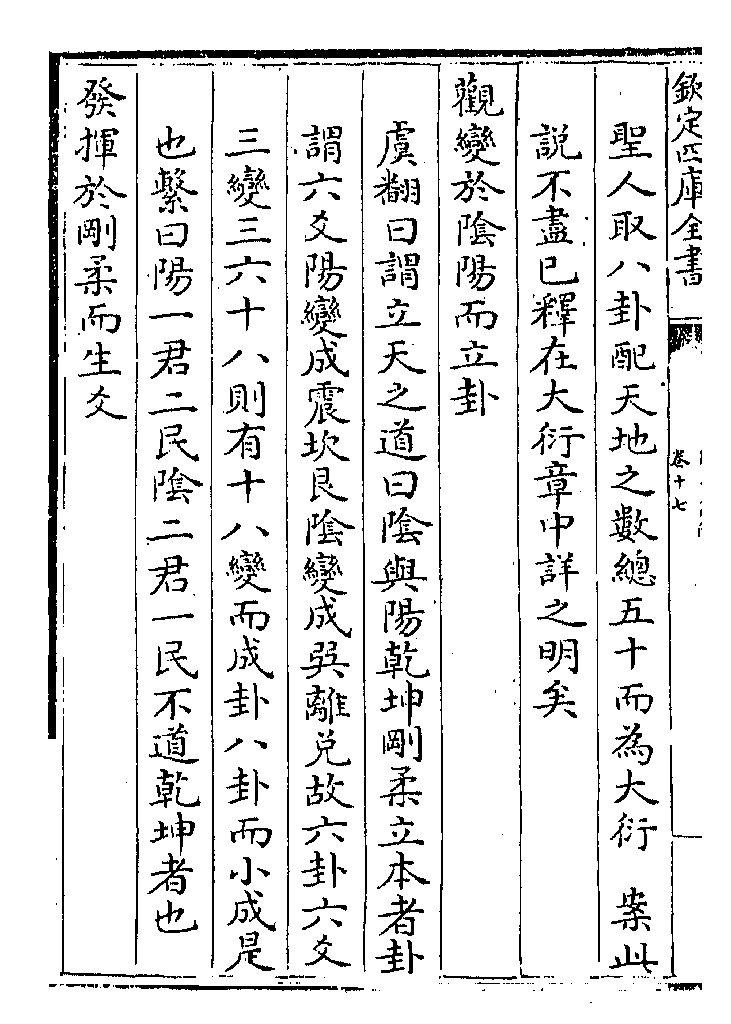 欽定四庫全書
卷十七
聖人取八卦配天地之數總五十而為大衍　案此
說不盡已釋在大衍章中詳之明矣
觀變於陰陽而立卦
虞翻曰謂立天之道曰陰與陽乾坤剛柔立本者卦
謂六爻陽變成震坎艮陰變成巽離兌故六卦六爻
三變三六十八則有十八變而成卦八卦而小成是
也繫曰陽一君二民陰二君一民不道乾坤者也
發揮於剛柔而生爻